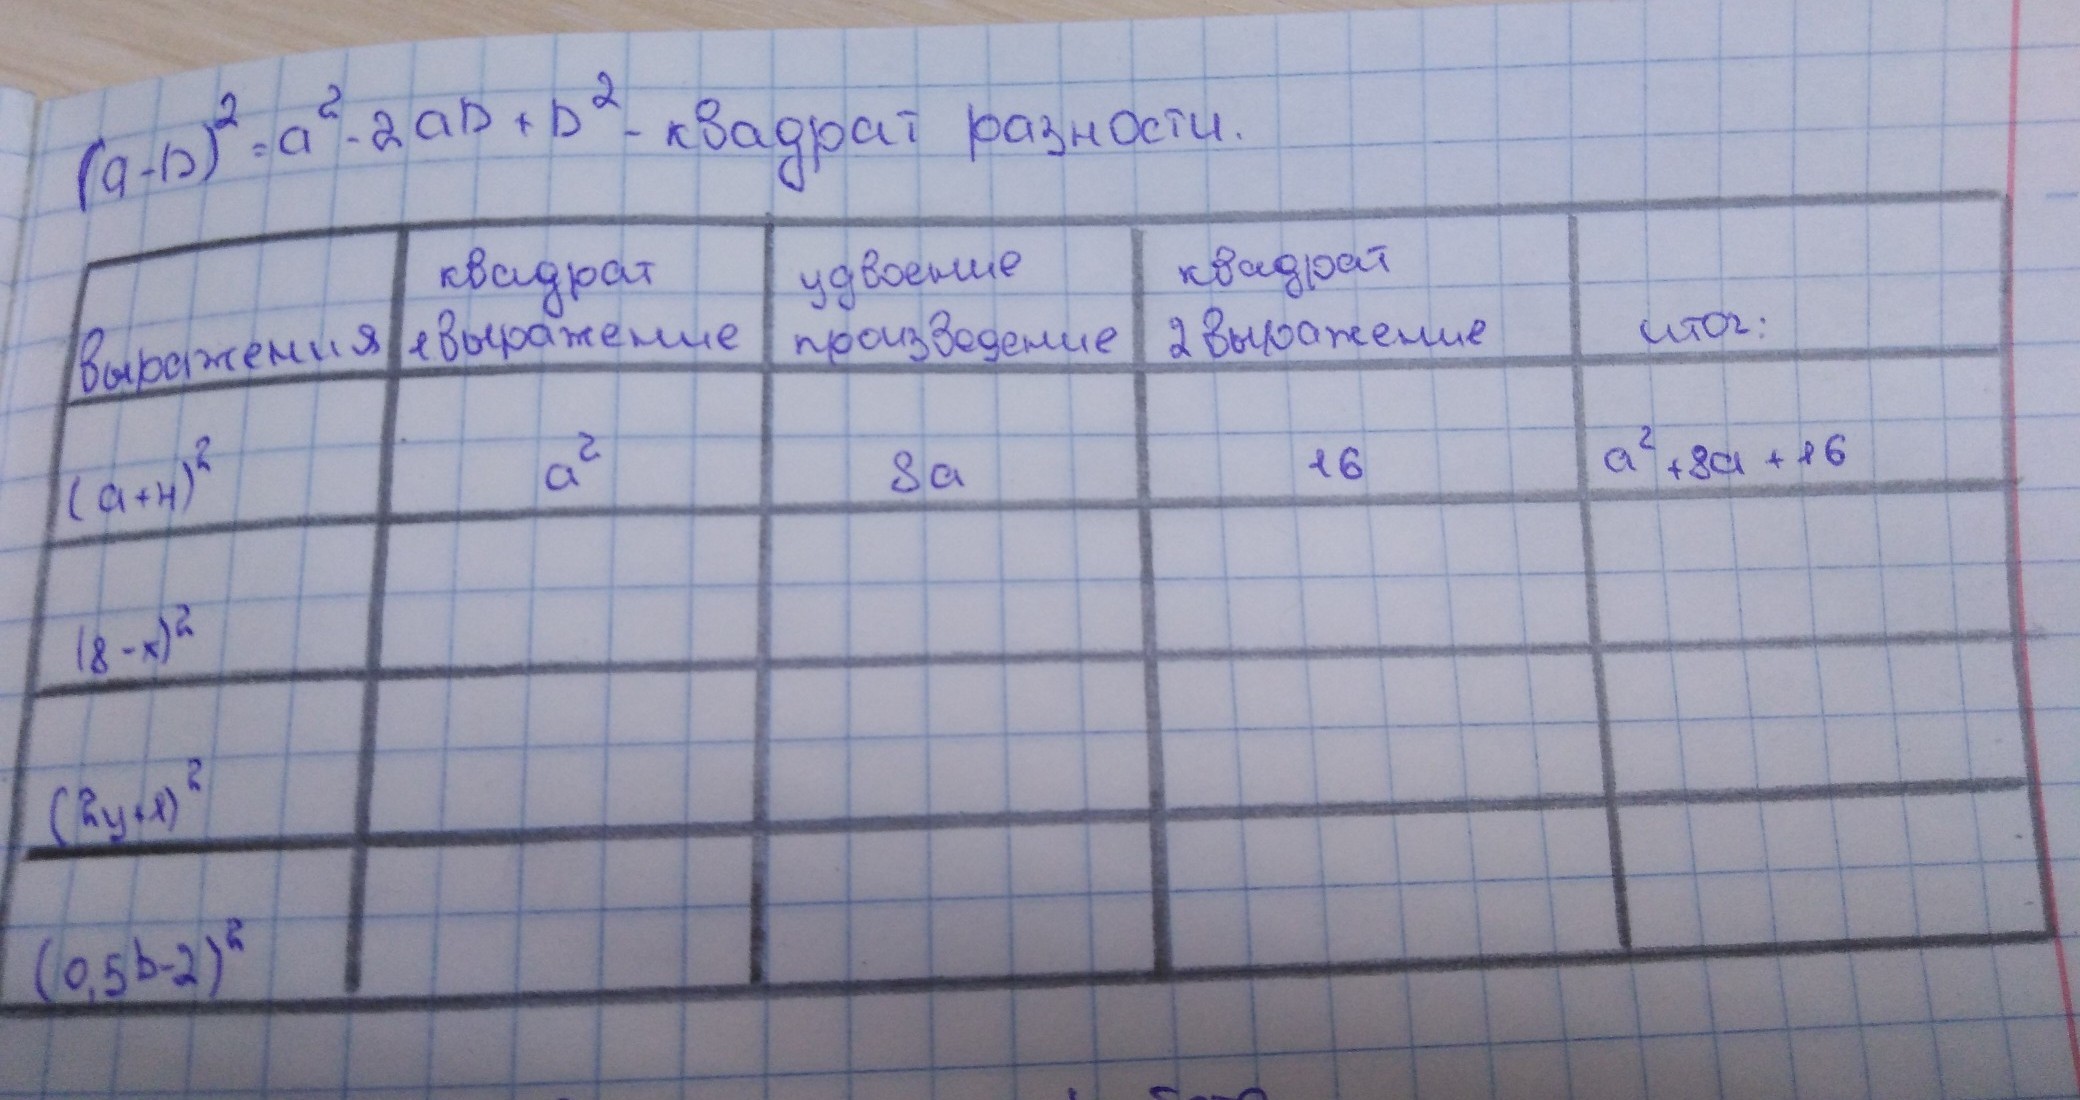 (a-b)² = a² - 2ab + b² - квадрат разности.
выражения квадрат 1 выражение удвоение произведение квадрат 2 выражение итог:
(a+4)² a² 8a 16 a²+8a+16
(8-x)²
(2y+1)²
(0,5b-2)²